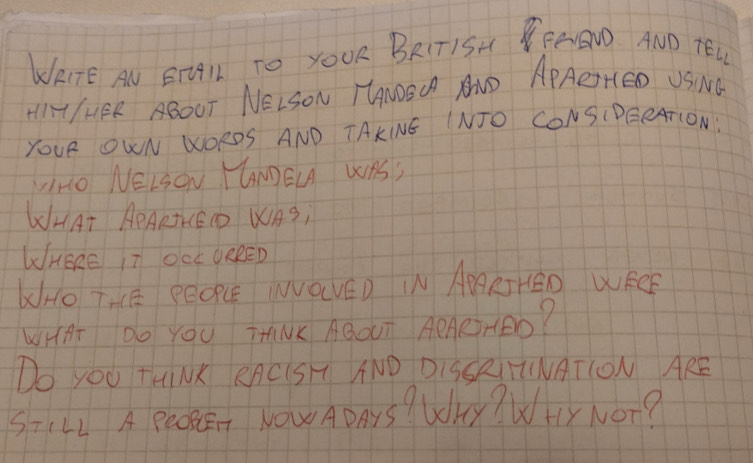 WRITE AN EMAIL TO YOUR BRITISH FRIEND AND TELL
HIM/HER ABOUT NELSON MANDELA AND APARTHED USING
YOUR OWN WORDS AND TAKING INTO CONSIDERATION:
WHO NELSON MANDELA WAS;
WHAT APARTHEID WAS;
WHERE IT OCCURRED
WHO THE PEOPLE INVOLVED IN APARTHED WERE
WHAT DO YOU THINK ABOUT APARTHED?
DO YOU THINK RACISM AND DISCRIMINATION ARE
STILL A PROBLEM NOWADAYS? WHY? WHY NOT?